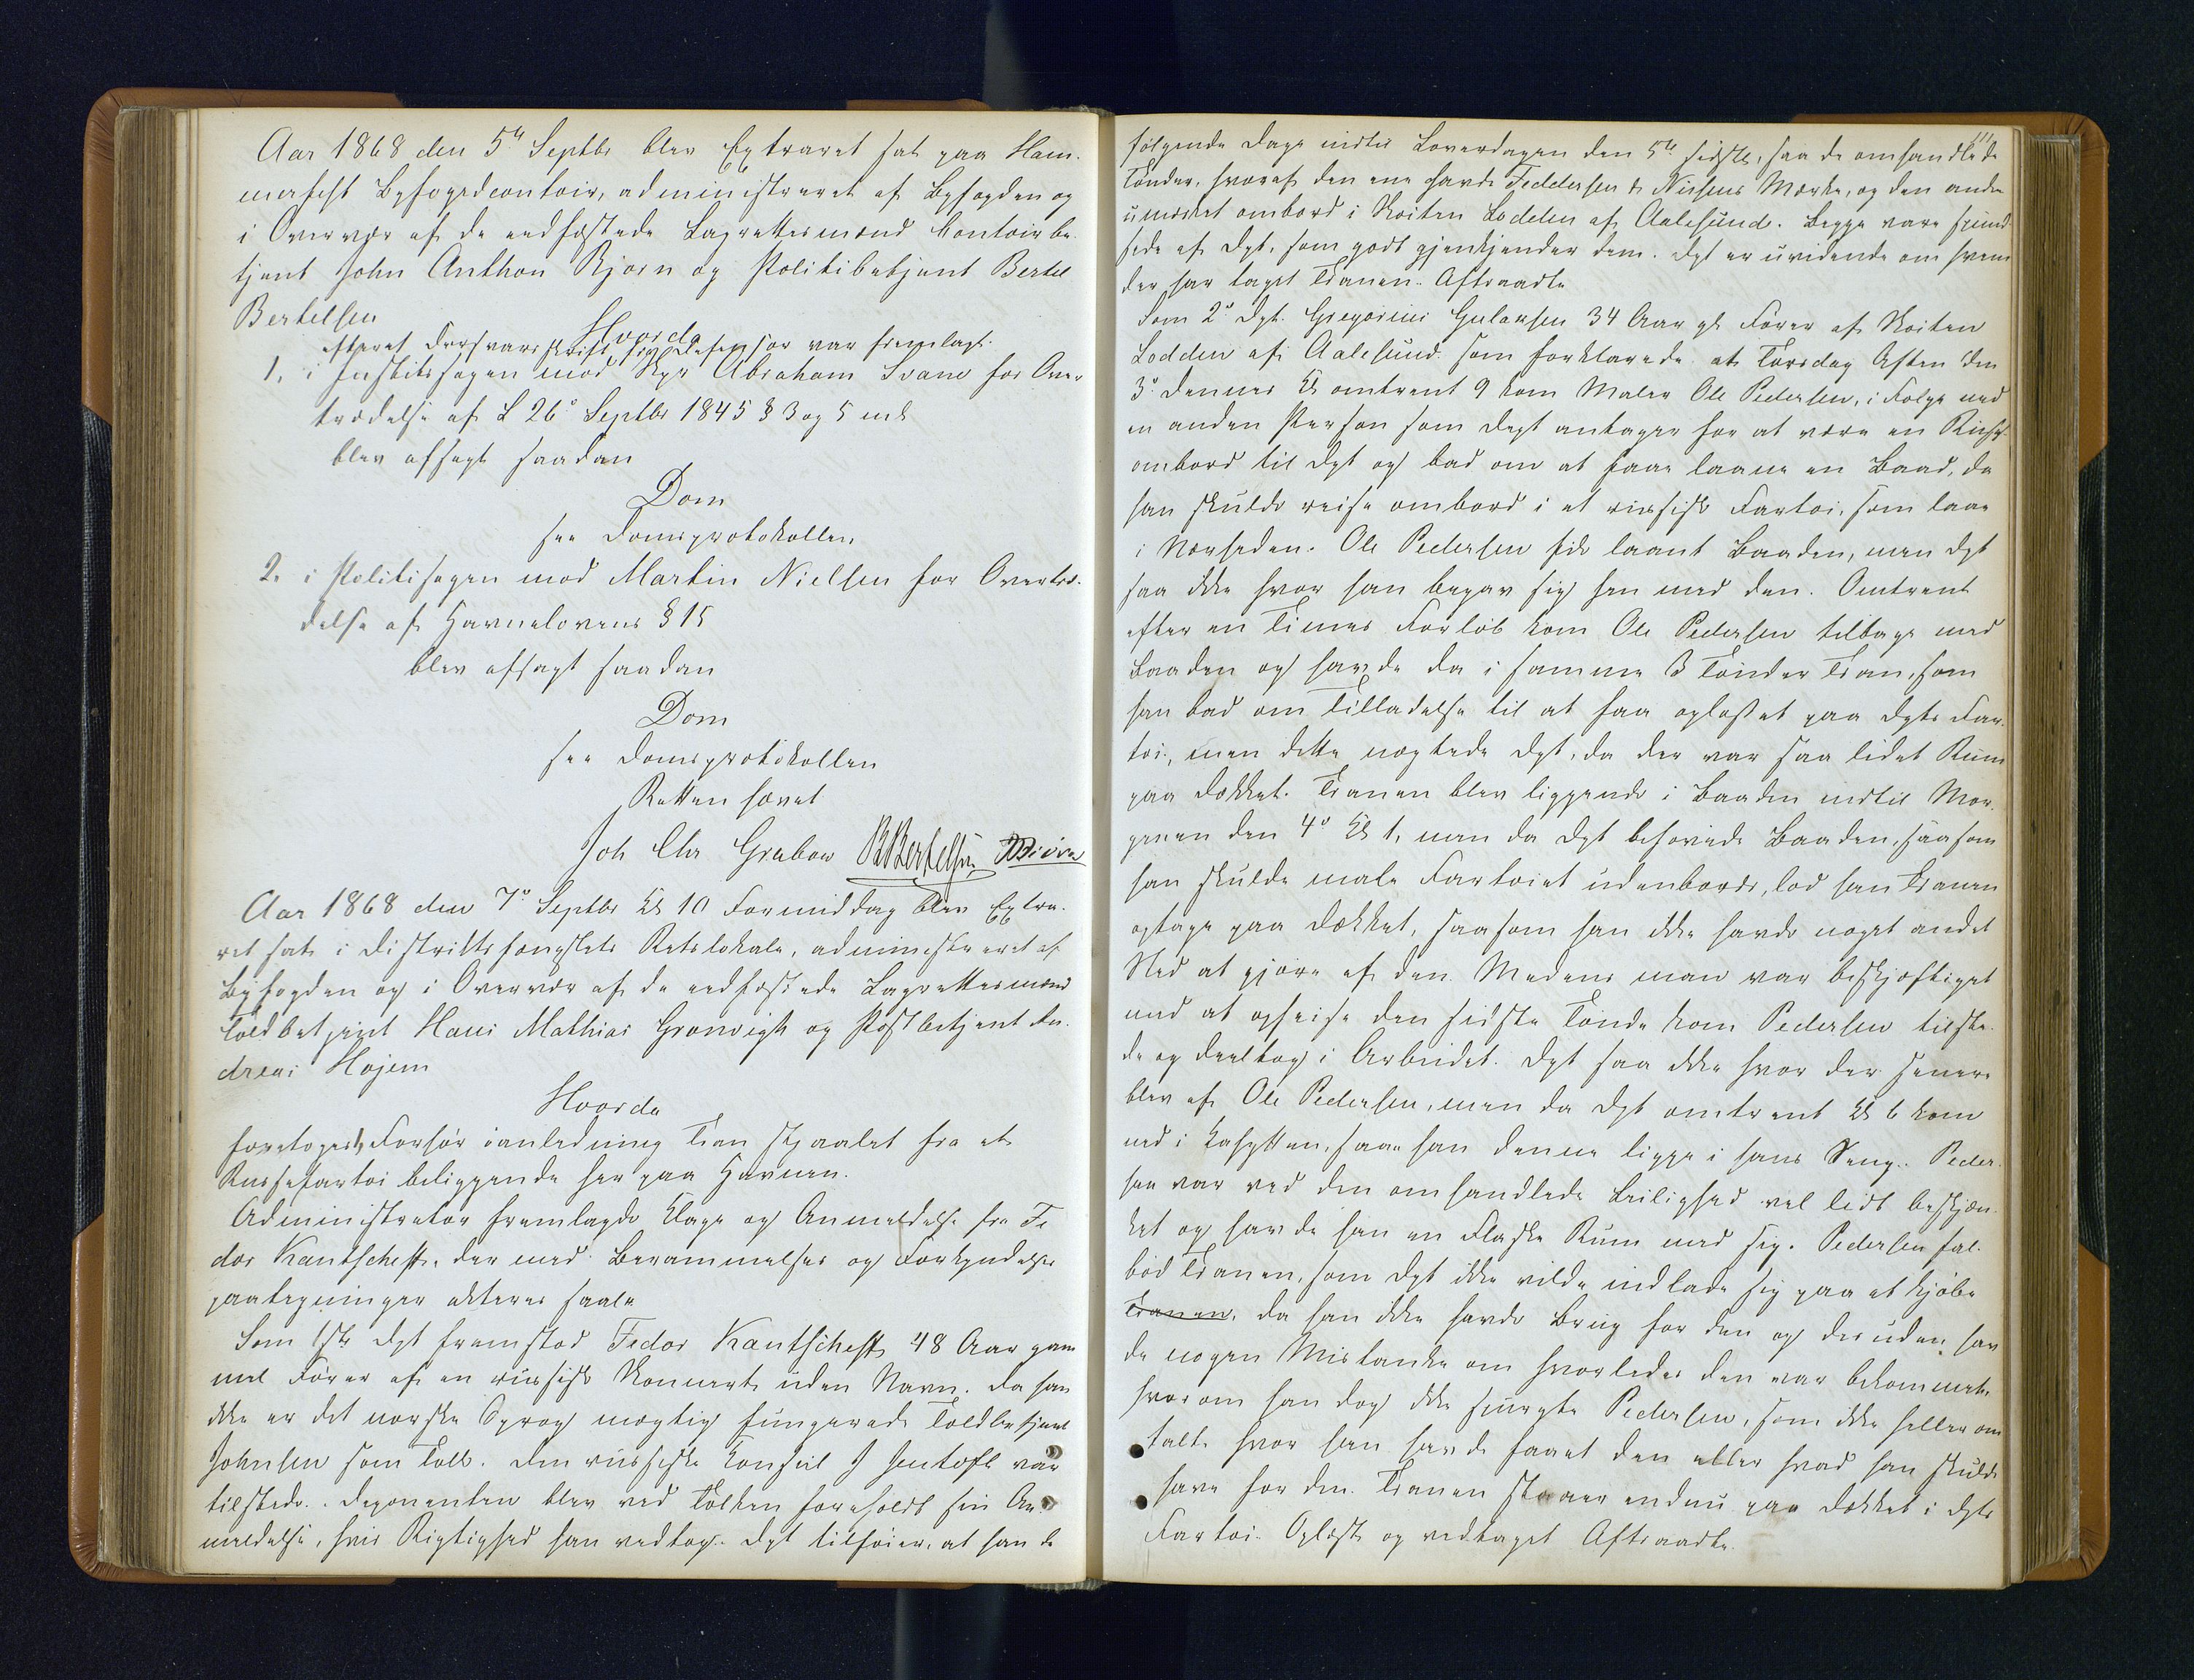 Aar 1868 den 5te Septbr blev Extraret sat paa Ham-
merfest Byfogedcontoir, administreret af Byfogden og
i Overvær af de eedfæstede Lagrettesmænd Contoirbe-
tjent John Anthon Bjørn og Politibetjent Bertel
Bertelsen
Hvorda
efterat Forsvarsskrift fra Defensor var fremlagt
1. i Justitssagen mod Skpr Abraham Svane for Over
trædelse af L 26de Septbr 1845 § 3 og 5 mk
blev afsagt saadan
Dom
see Domsprotokollen
2. i Politisagen mod Martin Nielsen for Overtræ-
delse af Havnelovens § 15
blev afsagt saadan
Dom
see Domsprotokollen
Retten hævet
Joh Chr Grabow BBertelsen Bjørn
Aar 1868 den 7de Septbr Kl 10 Formiddag blev Extra-
ret sat i Distriktsfængslets Retslokale, administreret af
Byfogden og i Overvær af de eedfæstede Lagrettesmænd
Toldbetjent Hans Mathias Gronvigh og Postbetjent An-
dreas Hojem
Hvorda
foretoges Forhør i anledning Tran stjaalet fra et
Russefartøi beliggende her paa Havnen.
Administrator fremlagde Klage og Anmeldelse fra Fe
dor Kantscheff, der med Berammelses og Forkyndelses
paategninger akteres saal.
Som 1ste Dpt fremstod Fedor Kantscheff 48 Aar gam
mel Fører af en russisk Konvert uden Navn. Da han
ikke er det norske Sprog mægtig fungerede Toldbetjent
Johnsen som Tolk. Den russiske Konsul J Jentoft var
tilstede. Deponenten blev ved Tolken foreholdt sin An-
meldelse, hvis Rigtighed han vedtog. Dpt tilføier, at han de
111
følgende Dage indtil Løverdagen den 5te sidstl, saa de omhandlede
Tønder, hvoraf den ene havde Feddersen & Nissens Mærke, og den anden
umærket ombord i Skøiten Lodden af Aalesund. Begge vare
af Dpt, som godt gjenkjender dem. Dpt er uvidende om hvem
der har taget Tranen. Aftraadte
Som 2de Dpt. Gregorius Gulaksen 34 Aar gl Fører af Skøiten
Lodden af Aalesund som forklarede at Torsdag Aften den
3de dennes Kl omtrent 9 kom Maler Ole Pedersen, i Følge med
en anden Person som Dept antager for at være en Russ-
ombord til Dpt og bad om at faae laane en Baad, da
han skulde reise ombord i et russisk Fartøi, som laae
i Nærheden. Ole Pedersen fik laant Baaden, men Dpt
saa ikke hvor han begav sig hen med den. Omtrent
efter en Times Forløb kom Ole Pedersen tilbage med
Baaden og havde da i samme 3 Tønder Tran, som
han bad om Tilladelse til at faa oplosset paa Dpts Far-
tøi, men dette nægtede Dpt, da der var saa lidet Rum
paa Dækket. Tranen blev liggende i Baaden indtil Mor-
genen den 4de Kl 1, men da Dpt behøvede Baaden, saasom
han skulde male Fartøiet udenbords, lod han Tranen
optage paa Dækket, saasom han ikke havde noget andet
Sted at gjøre af den. Medens man var beskjæftiget
med at opheise den sidste Tønde kom Pedersen tilste-
de og deeltog i Arbeidet. Dpt saa ikke hvor der senere
blev af Ole Pedersen, men da Dpt omtrent Kl 6 kom
ned i Kahytten, saae han denne ligge i hans Seng. Peder-
sen var ved den omhandlede Leilighed vel lidt beskjæn-
ket og havde han en Flaske Rum med sig. Pedersen fal-
bød Tranen, som Dpt ikke vilde indlade sig paa at kjøbe
Tranen, da han ikke havde Brug for den og desuden hav
de nogen Mistanke om hvorledes den var bekommet,
hvorom han dog ikke spurgte Pedersen, som ikke heller om
talte hvor han havde faaet den eller hvad han skulde
have for den. Tranen staaer endnu paa Dækket i Dpts
Fartøi. Oplæst og vedtaget Aftraadte.